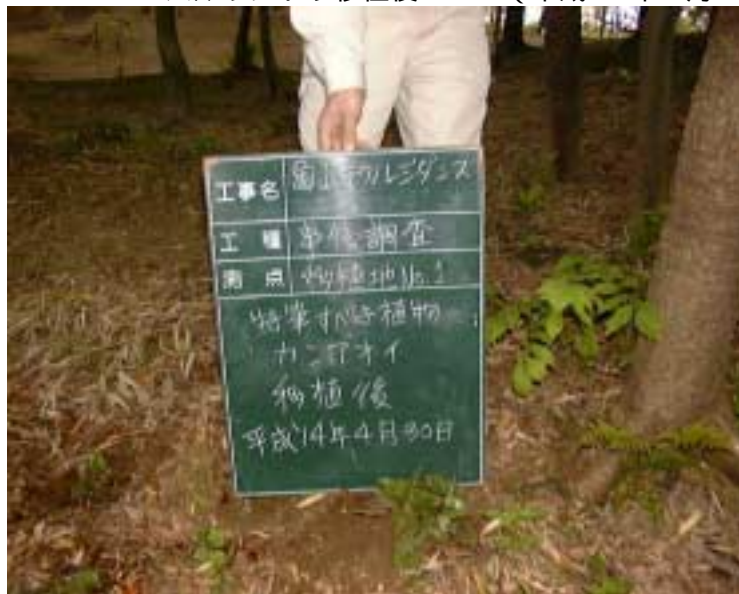 工事名
レジダンス
工種 事後調査
測点 移植地No.1
特筆すべき植物
カンアオイ
移植後
平成14年4月30日